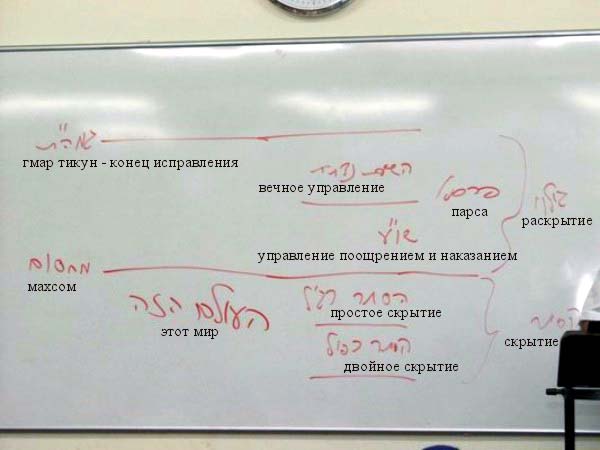 גמה"ת
гмар тикун - конец исправления
נצחית
вечное управление
פרסא
парса
גילוי
раскрытие
שו"ע
управление поощрением и наказанием
מחסום
махсом
העולם הזה
этот мир
הסתר רגיל
простое скрытие
הסתר
скрытие
הסתר כפול
двойное скрытие